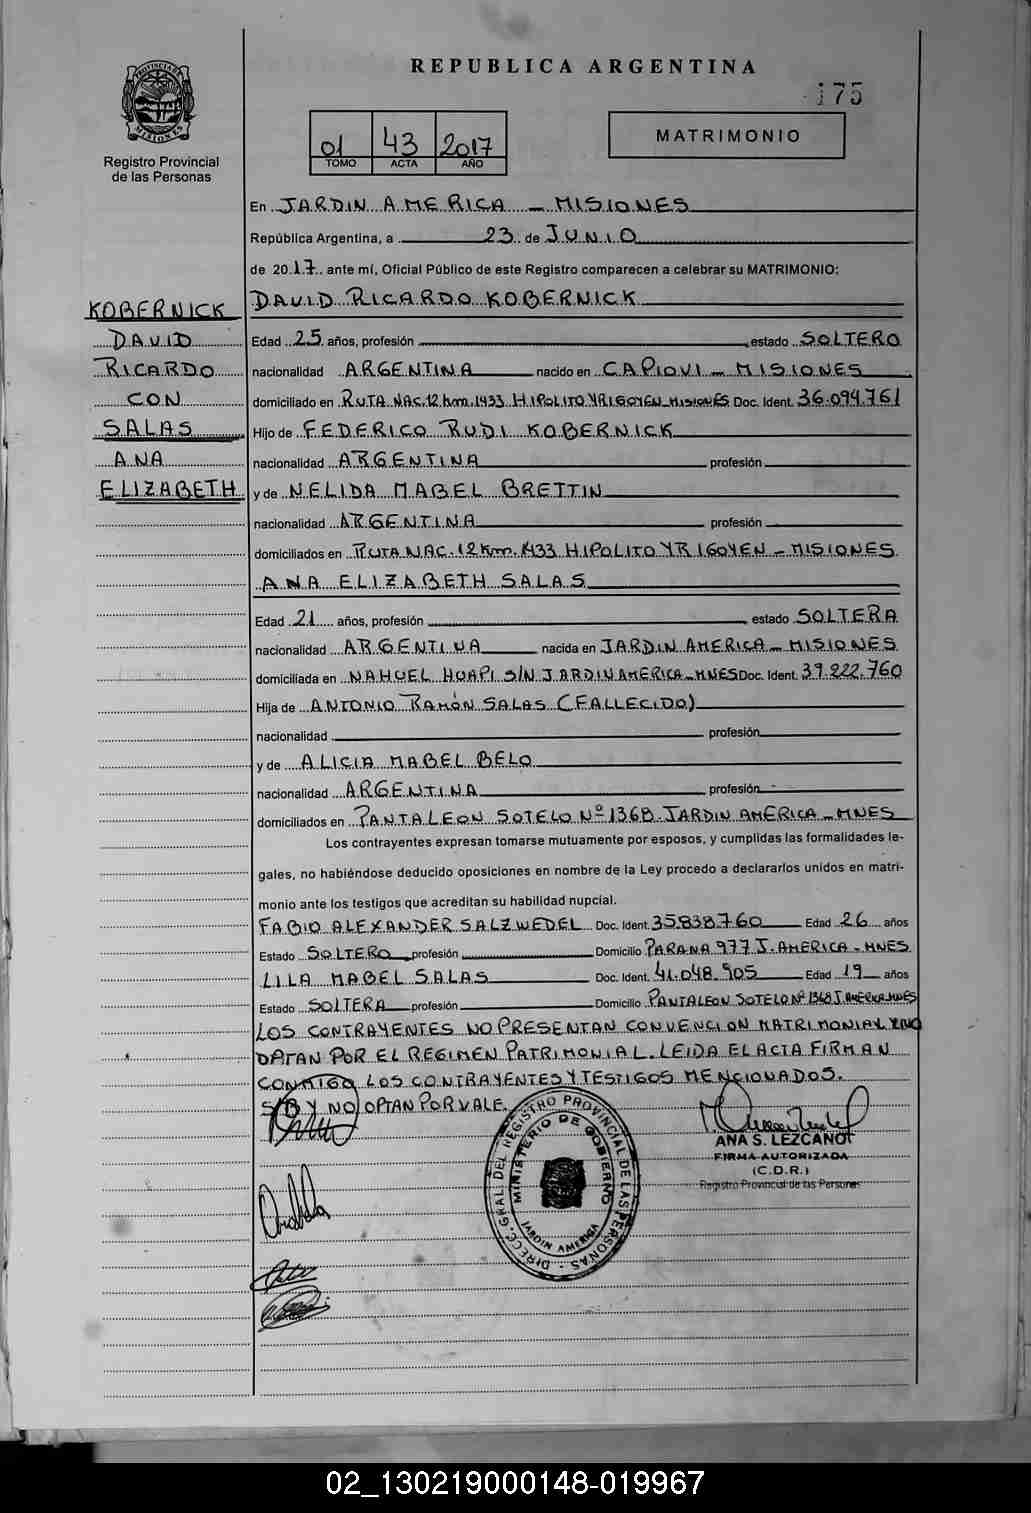 REPUBLICA ARGENTINA
175
PROVINCIA DE MISIONES
Registro Provincial
de las Personas
01 43 2017
TOMO ACTA AÑO
MATRIMONIO
En JARDIN AMERICA - MISIONES
República Argentina, a 23 de JUNIO
de 2017 ante mí, Oficial Público de este Registro comparecen a celebrar su MATRIMONIO:
DAVID RICARDO KOBERNICK
KOBERNICK
DAVID
RICARDO
CON
SALAS
ANA
ELIZABETH
Edad 25 años, profesión estado SOLTERO
nacionalidad ARGENTINA nacido en CAPIOVI - MISIONES
domiciliado en RUTA NAC. 12 Km. 1433 HIPOLITO YRIGOYEN - MISIONES Doc. Ident. 36.094.761
Hijo de FEDERICO RUDI KOBERNICK
nacionalidad ARGENTINA profesión
y de NELIDA MABEL BRETTIN
nacionalidad ARGENTINA profesión
domiciliados en RUTA NAC. 12 Km. 1433 HIPOLITO YRIGOYEN - MISIONES
ANA ELIZABETH SALAS
Edad 21 años, profesión estado SOLTERA
nacionalidad ARGENTINA nacida en JARDIN AMERICA - MISIONES
domiciliada en NAHUEL HUAPI S/N JARDIN AMERICA - MNES Doc. Ident. 39.222.760
Hija de ANTONIO RAMÓN SALAS (FALLECIDO)
nacionalidad profesión
y de ALICIA MABEL BELO
nacionalidad ARGENTINA profesión
domiciliados en PANTALEON SOTELO Nº 1368. JARDIN AMERICA - MNES
Los contrayentes expresan tomarse mutuamente por esposos, y cumplidas las formalidades le-
gales, no habiéndose deducido oposiciones en nombre de la Ley procedo a declararlos unidos en matri-
monio ante los testigos que acreditan su habilidad nupcial.
FABIO ALEXANDER SALZWEDEL Doc. Ident. 35.838.760 Edad 26 años
Estado SOLTERO profesión Domicilio PARANA 977 J. AMERICA - MNES
LILA MABEL SALAS Doc. Ident. 41.048.905 Edad 19 años
Estado SOLTERA profesión Domicilio PANTALEON SOTELO Nº 1368 J. AMERICA MNES
LOS CONTRAYENTES NO PRESENTAN CONVENCION MATRIMONIAL Y NO
OPTAN POR EL REGIMEN PATRIMONIAL. LEIDA EL ACTA FIRMAN
CONMIGO LOS CONTRAYENTES Y TESTIGOS MENCIONADOS.
S/B Y NO OPTAN POR VALE.
DIREC. GRAL. DEL REGISTRO PROVINCIAL DE LAS PERSONAS
MINISTERIO DE GOBIERNO
JARDIN AMERICA
ANA S. LEZCANO
FIRMA AUTORIZADA
(C.D.R.)
Registro Provincial de las Personas
02_130219000148-019967